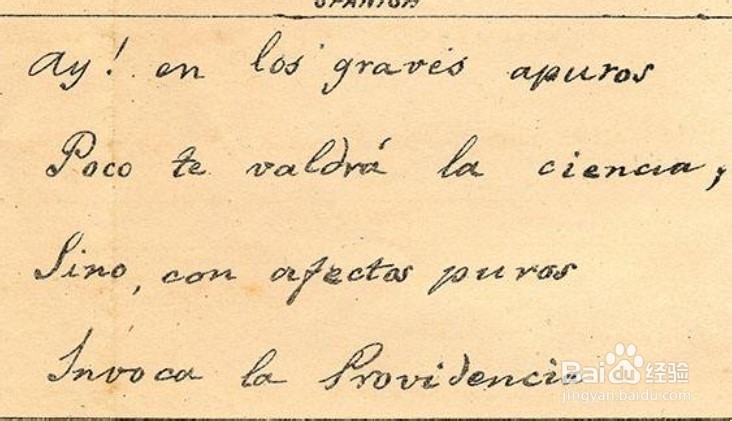 SPANISH
Ay! en los graves apuros
Poco te valdrá la ciencia,
Sino, con afectos puros
Invoca la Providencia
Baidu 经验
jingyan.baidu.com